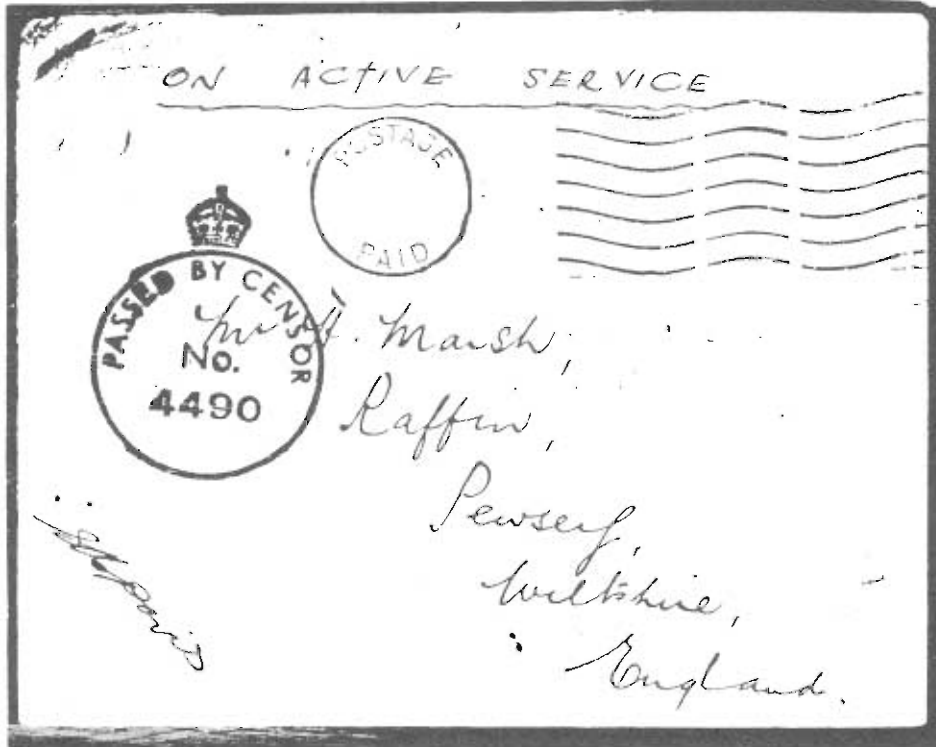 ON ACTIVE SERVICE
POSTAGE
PAID
PASSED BY CENSOR
No.
4490
Mr H. Marsh,
Raffin,
Pewsey,
Wiltshire,
England.